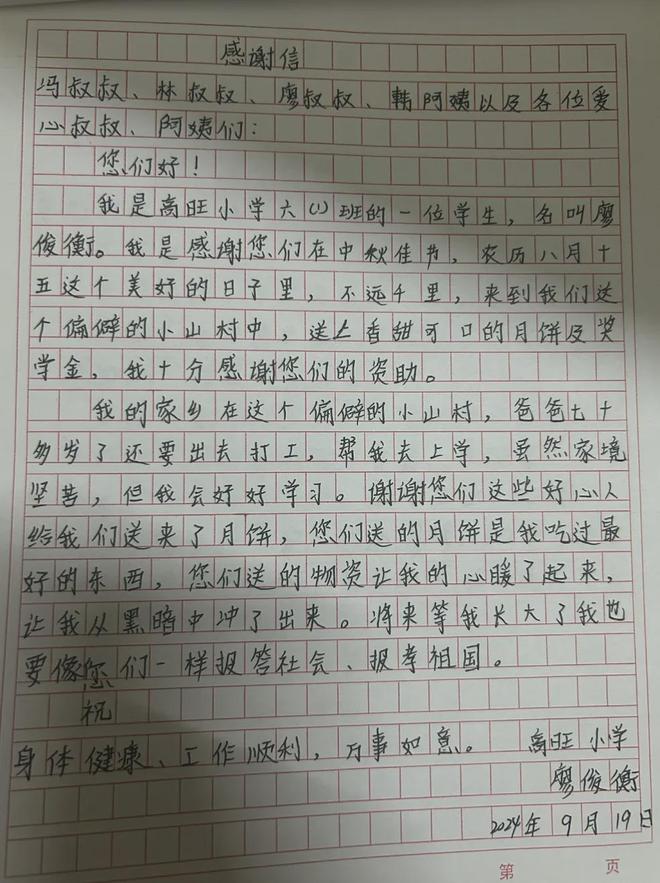 感谢信
冯叔叔、林叔叔、廖叔叔、韩阿姨以及各位爱
心叔叔、阿姨们：
您们好！
我是高旺小学六(1)班的一位学生，名叫廖
俊衡。我是感谢您们在中秋佳节，农历八月十
五这个美好的日子里，不远千里，来到我们这
个偏僻的小山村中，送上香甜可口的月饼及奖
学金，我十分感谢您们的资助。
我的家乡在这个偏僻的小山村，爸爸七十
多岁了还要出去打工，帮我去上学，虽然家境
坚苦，但我会好好学习。谢谢您们这些好心人
给我们送来了月饼，您们送的月饼是我吃过最
好的东西，您们送的物资让我的心暖了起来，
让我从黑暗中冲了出来。将来等我长大了我也
要像您们一样报答社会、报孝祖国。
祝
身体健康、工作顺利，万事如意。 高旺小学
廖俊衡
2024年9月19日
第 页